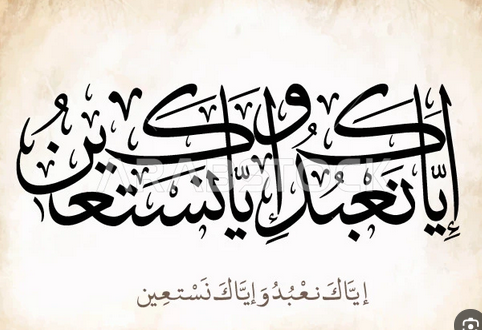 إِيَّاكَ نَعْبُدُ وَإِيَّاكَ نَسْتَعِين
ARABSTOCK
إيَّاكَ نعْبُدُ وَإيَّاكَ نَسْتعِين